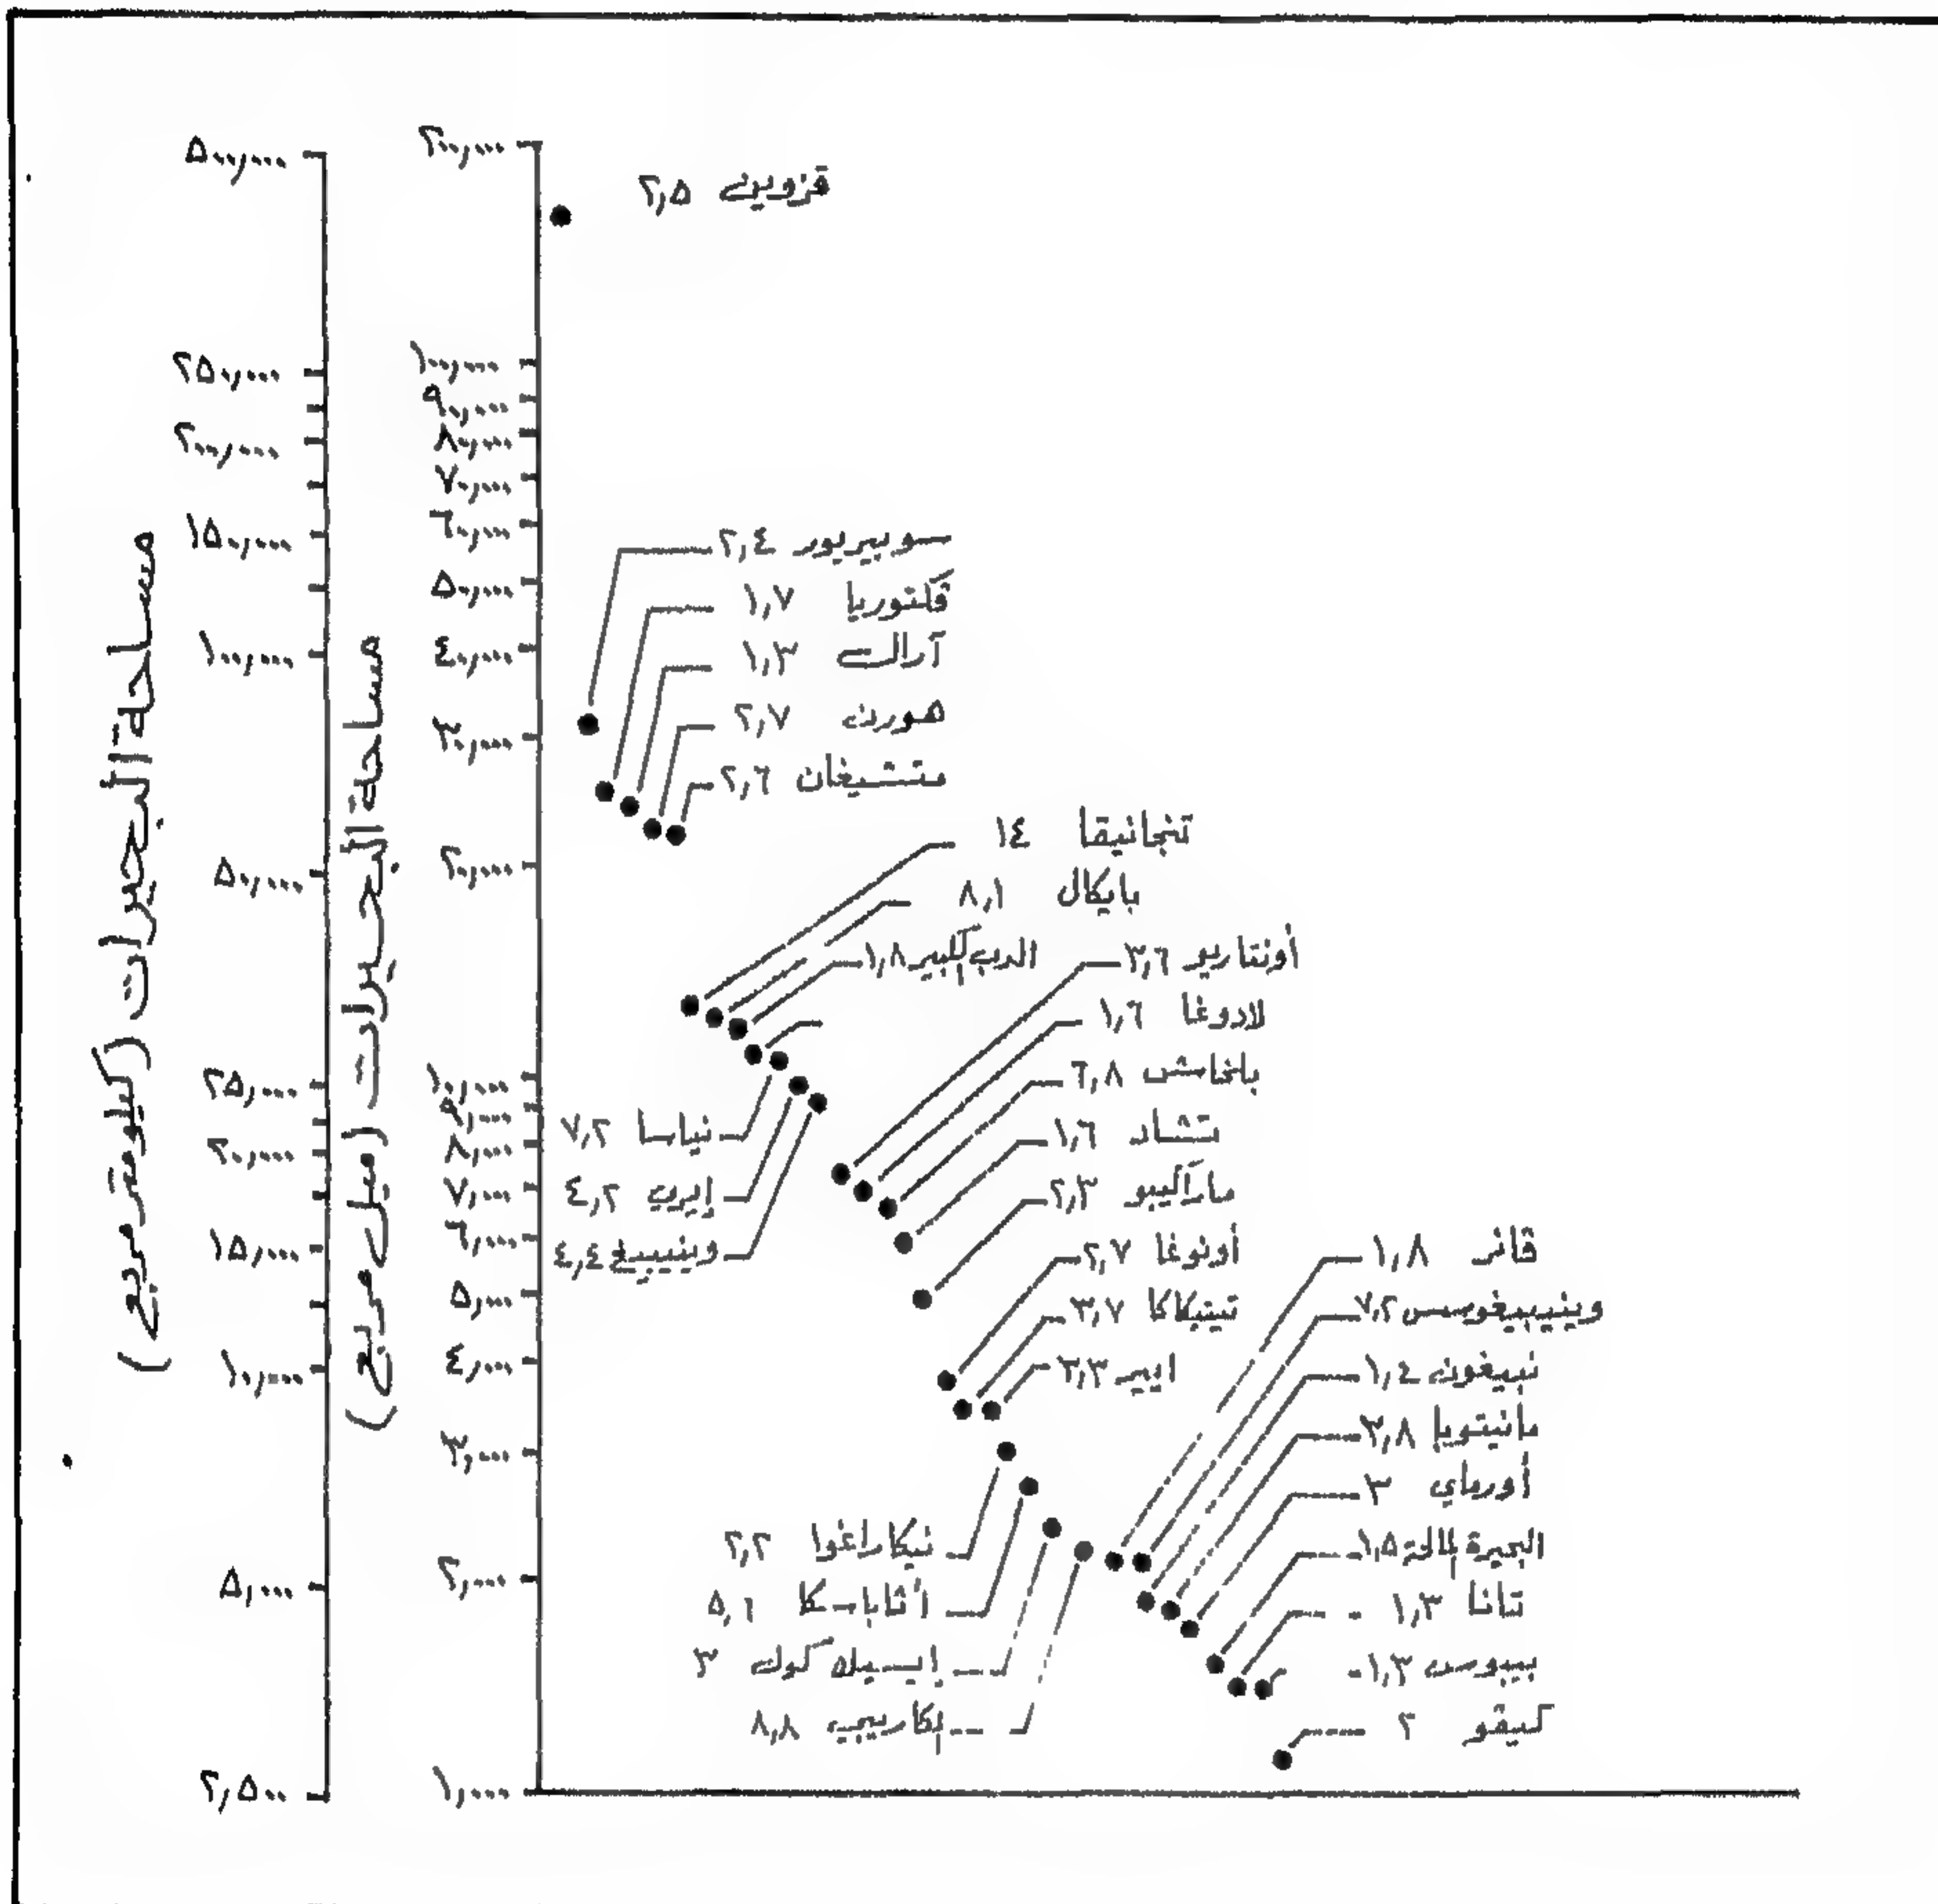 مساحة البحيرات (كيلومتر مربع)
٥٠٠,٠٠٠
٢٥٠,٠٠٠
٢٠٠,٠٠٠
١٥٠,٠٠٠
١٠٠,٠٠٠
٥٠,٠٠٠
٢٥,٠٠٠
٢٠,٠٠٠
١٥,٠٠٠
١٠,٠٠٠
٥,٠٠٠
٢,٥٠٠
مساحة البحيرات (ميل مربع)
٢٠٠,٠٠٠
١٠٠,٠٠٠
٩٠,٠٠٠
٨٠,٠٠٠
٧٠,٠٠٠
٦٠,٠٠٠
٥٠,٠٠٠
٤٠,٠٠٠
٣٠,٠٠٠
٢٠,٠٠٠
١٠,٠٠٠
٩,٠٠٠
٨,٠٠٠
٧,٠٠٠
٦,٠٠٠
٥,٠٠٠
٤,٠٠٠
٣,٠٠٠
٢,٠٠٠
١,٠٠٠
قزوين ٢,٥
سوبيريور ٢,٤
ڤكتوريا ١,٧
آرال ١,٣
هورن ٢,٧
متشيغان ٢,٦
تنجانيقا ١٤
بايكال ٨,١
الدب الكبير ١,٨
نياسا ٧,٢
إيري ٤,٢
وينيبيغ ٤,٤
أونتاريو ٣,٦
لادوغا ١,٦
بلخاش ٦,٨
تشاد ١,٦
ماراكيبو ٢,٣
أونوغا ٢,٧
تيتيكاكا ٣,٧
ايير ٣,٣
نيكاراغوا ٢,٢
أثاباسكا ٥,٦
إيسيك كوك ٣
٨,٨
ڤانر ١,٨
وينيبيغوسس ٧,٢
نيبيغون ١,٤
مانيتوبا ٣,٨
أورماي ٣
البحيرة المالحة ١,٥
تانا ١,٣
بيبوس ١,٣
كيڤو ٢